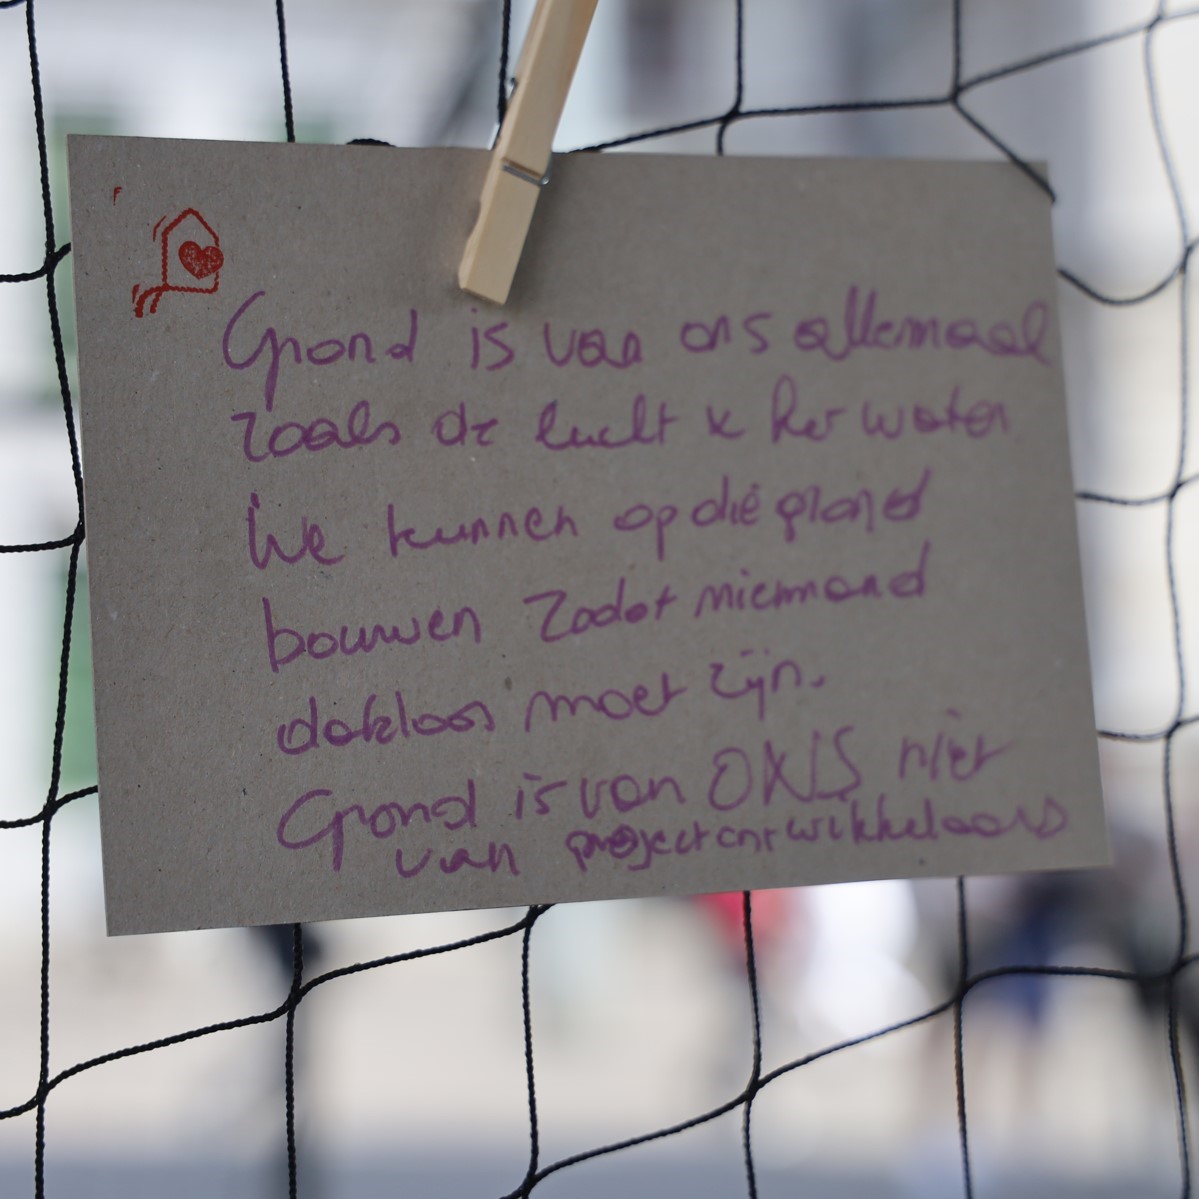 Grond is van ons allemaal
zoals de lucht & het water
We kunnen op die grond
bouwen zodat niemand
dakloos moet zijn.
Grond is van ONS niet
van projectontwikkelaars